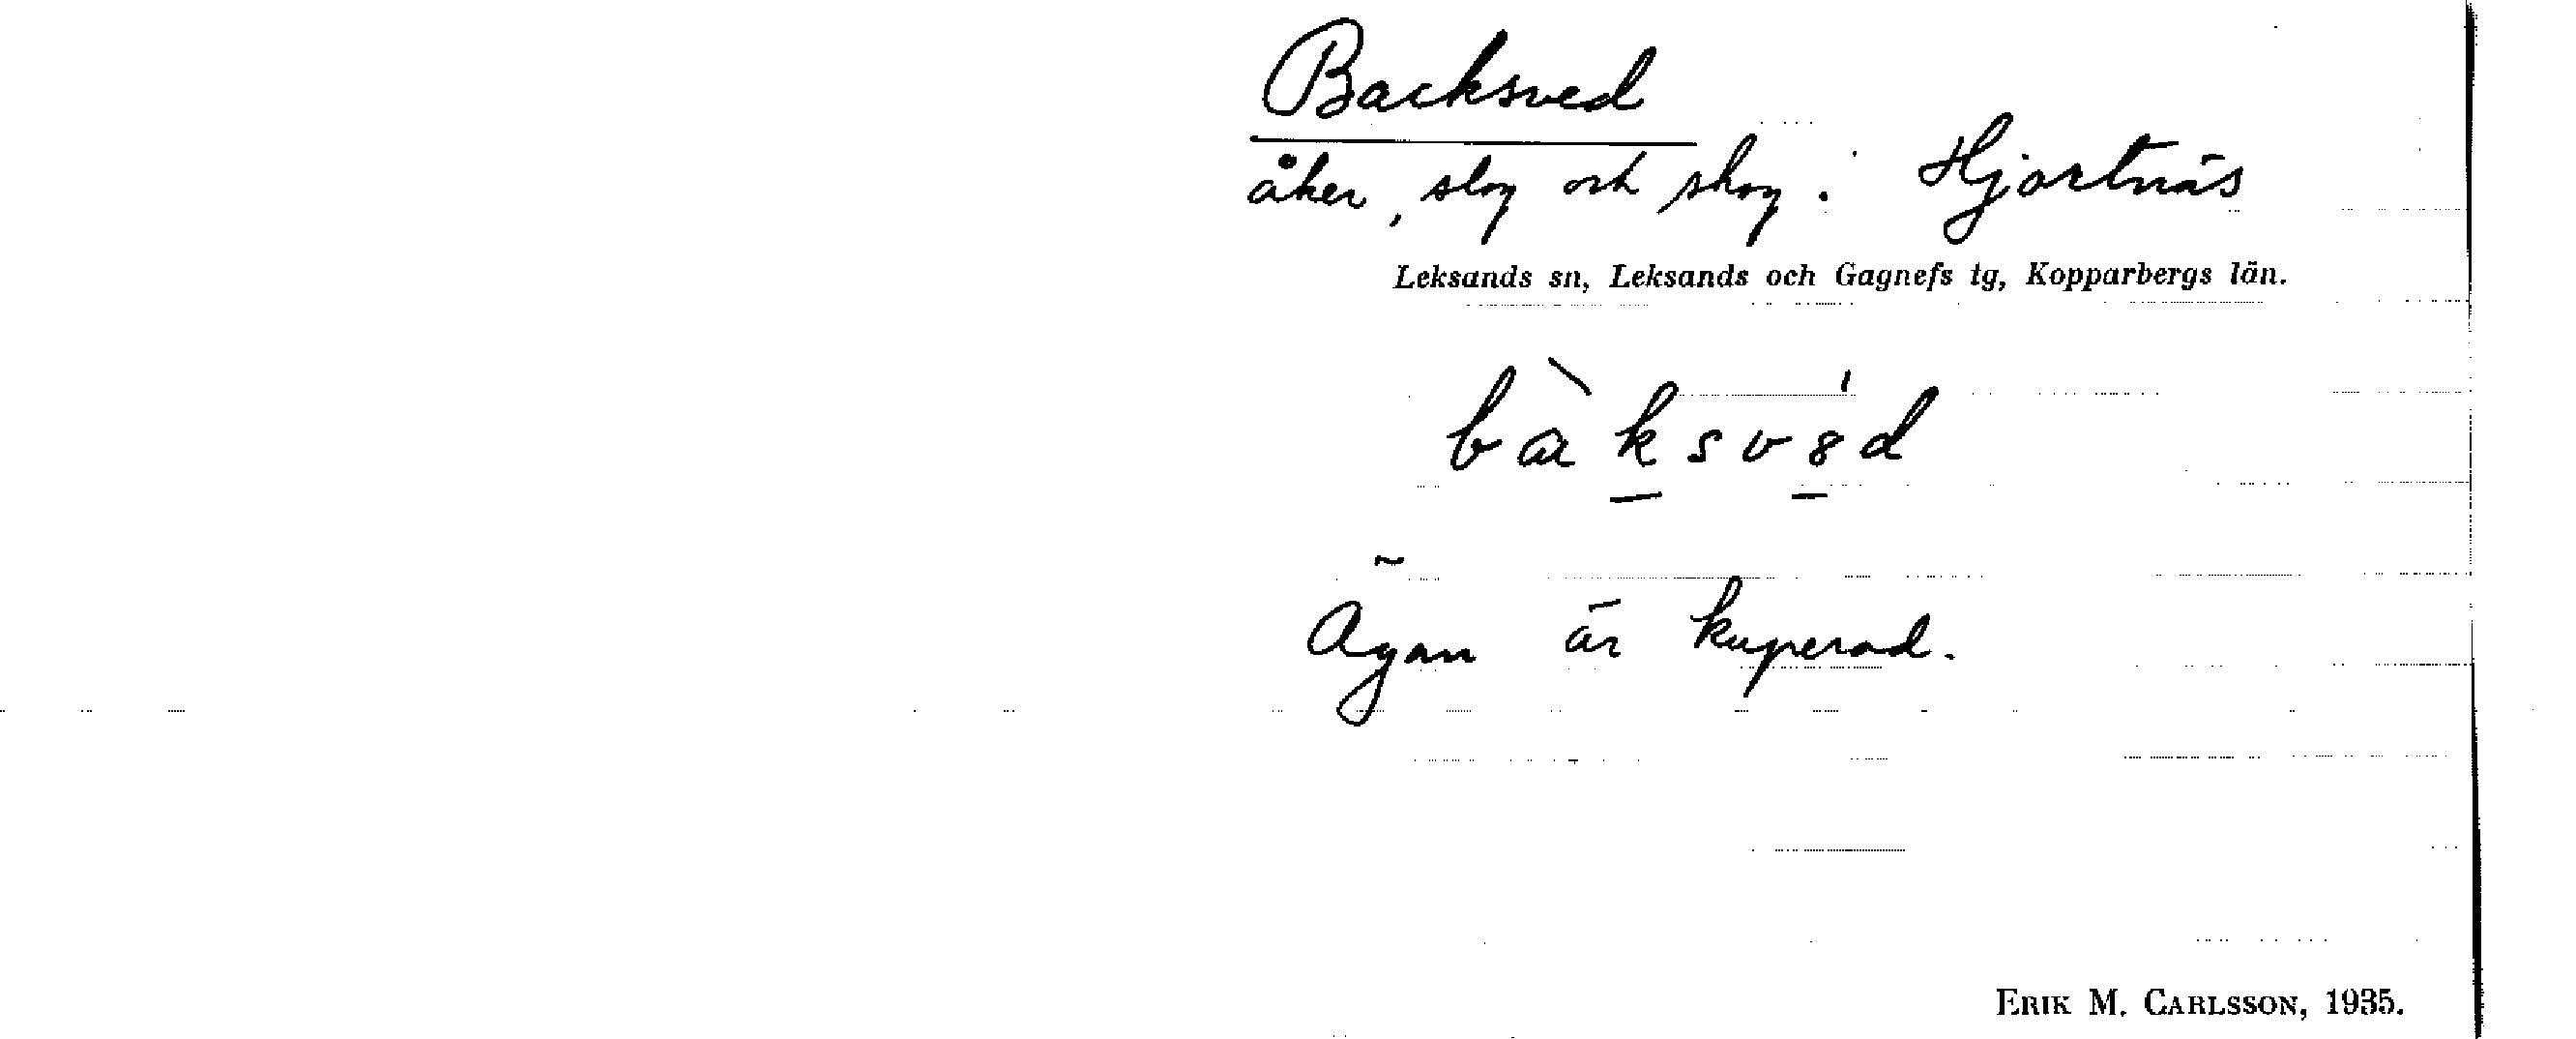 Backsved
åker, slog och skog. Hjortnäs
Leksands sn, Leksands och Gagnefs tg, Kopparbergs län.
Ägan är kuperad.
ERIK M. CARLSSON, 1935.